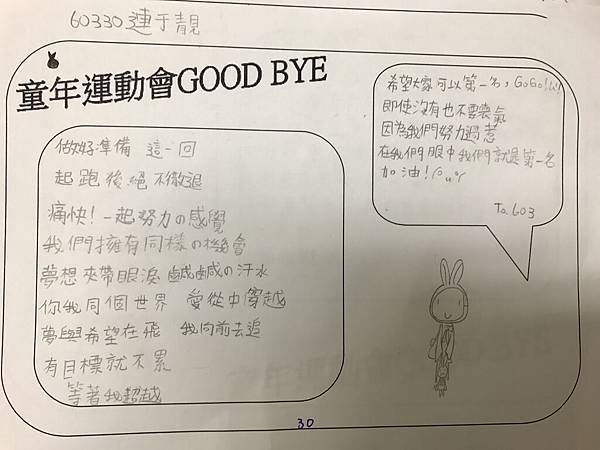 60330 連于靚
童年運動會GOOD BYE
做好準備 這一回
起跑後絕不撤退
痛快!一起努力の感覺
我們擁有同樣の機會
夢想夾帶眼淚 鹹鹹の汗水
你我同個世界 愛從中穿越
夢與希望在飛 我向前去追
有目標就不累
等著我超越
希望大家可以第一名,GoGo!
即使沒有也不要喪氣
因為我們努力過惹
在我們眼中我們就是第一名
加油!
To. 603
30